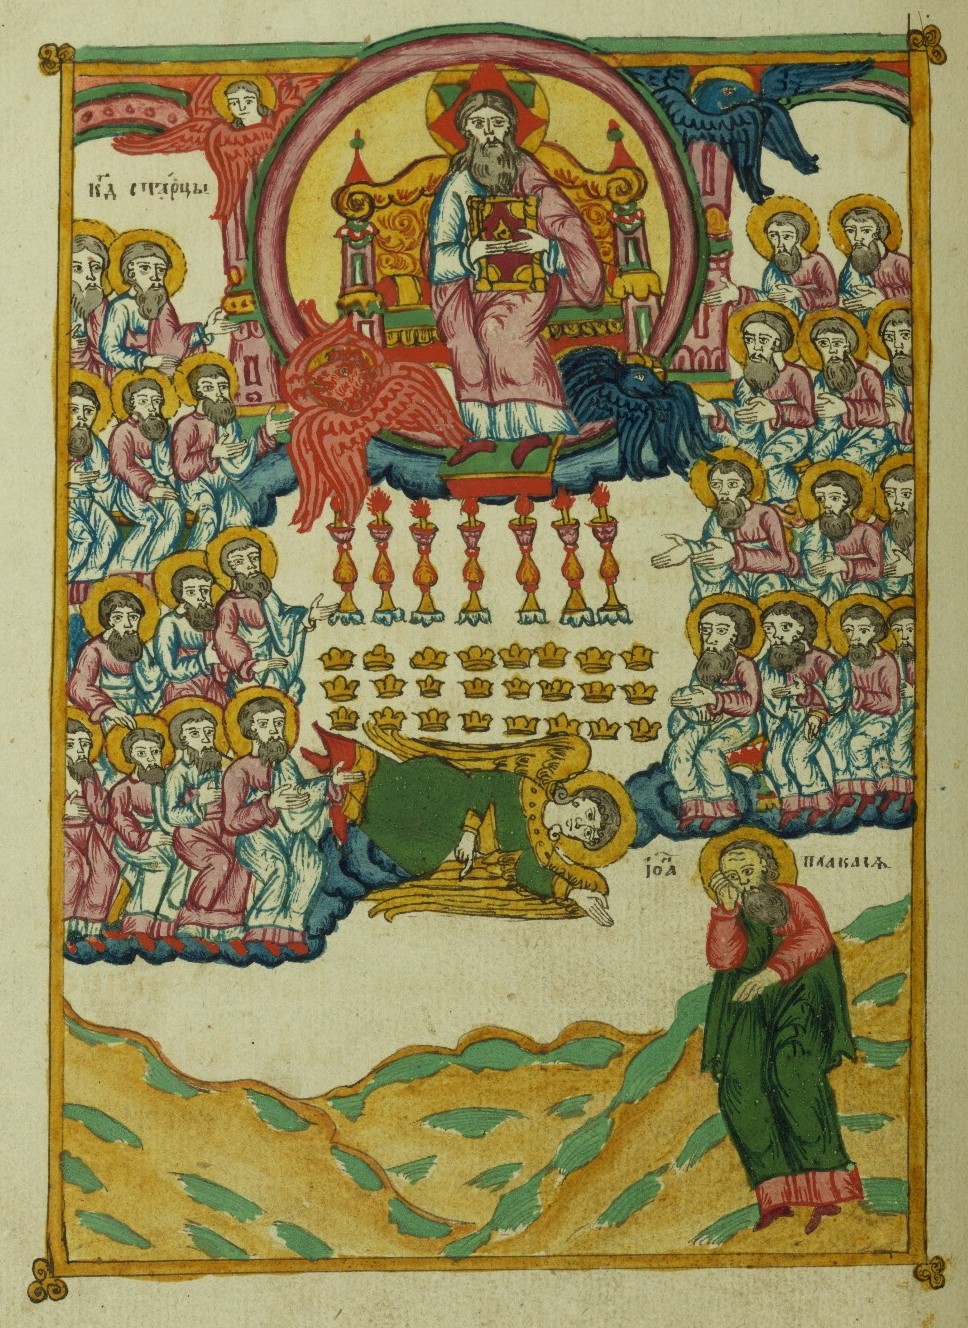 к҃д старцы
іѡ҃а плакася